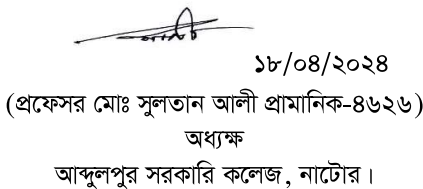 ১৮/০৪/২০২৪
(প্রফেসর মোঃ সুলতান আলী প্রামানিক-৪৬২৬)
অধ্যক্ষ
আব্দুলপুর সরকারি কলেজ, নাটোর।